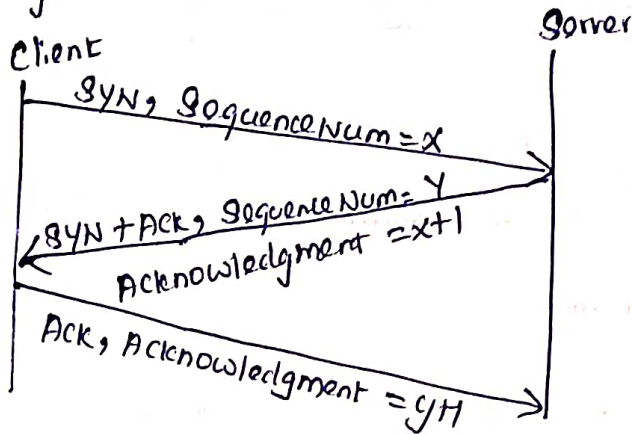 Client
Server
SYN, SequenceNum = x
SYN + Ack, SequenceNum = Y
Acknowledgment = x+1
Ack, Acknowledgment = y+1